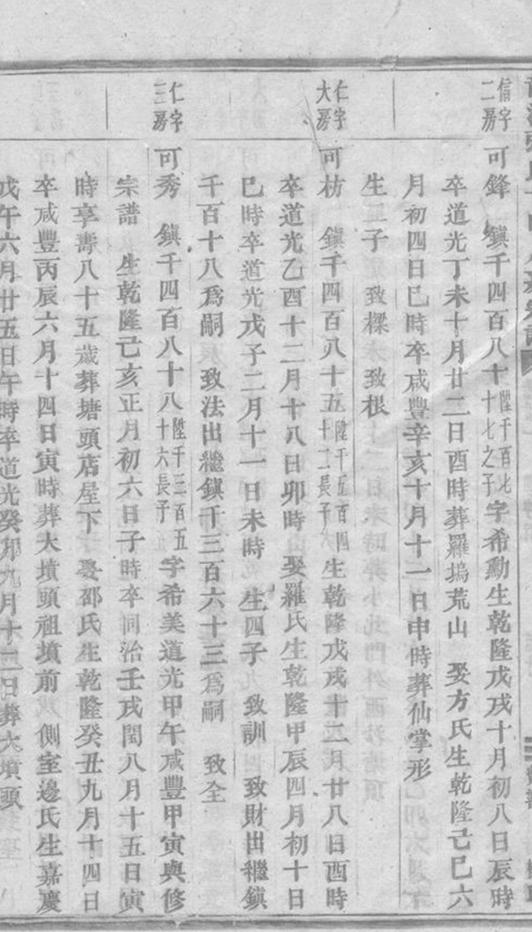 信字二房
可鋒　鎮千四百八十陞千百七十七之子字希勳生乾隆戊戌十月初八日辰時
卒道光丁未十月廿二日酉時葬羅塢荒山　娶方氏生乾隆己巳六
月初四日巳時卒咸豐辛亥十月十一日申時葬仙掌形
生二子　致樑　致根
仁字大房
可枋　鎮千四百八十五陞千五百四十二長子生乾隆戊戌十二月廿八日酉時
卒道光乙酉十二月十八日卯時　娶羅氏生乾隆甲辰四月初十日
巳時卒道光戊子二月十一日未時　生四子　致訓　致財出繼鎮
千百十八爲嗣　致法出繼鎮千三百六十三爲嗣　致全
仁字三房
可秀　鎮千四百八十八陞千三百五十六長子字希美道光甲午咸豐甲寅與修
宗譜　生乾隆己亥正月初六日子時卒同治壬戌閏八月十五日寅
時享壽八十五歲葬塘頭店屋下　娶邵氏生乾隆癸丑九月十四日
卒咸豐丙辰六月十四日寅時葬大墳頭祖墳前　側室邊氏生嘉慶
戊午六月廿五日午時卒道光癸卯九月十二日葬大墳頭